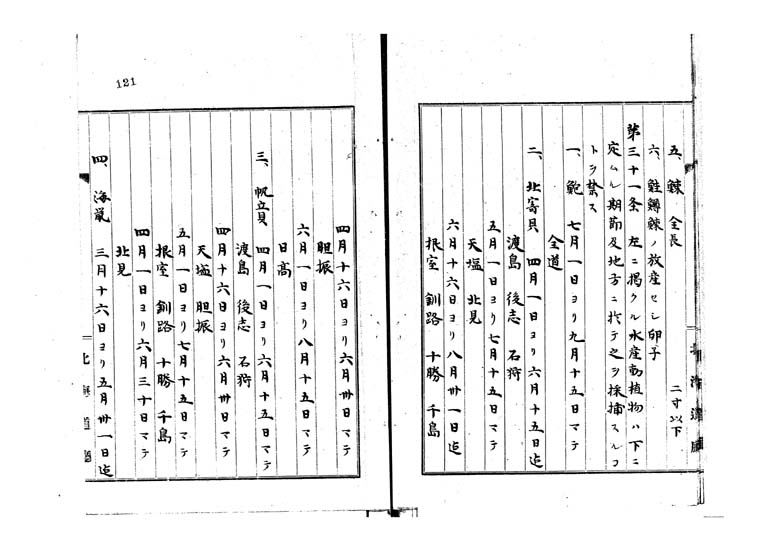 五、鰊 全長 二寸以下
六、鮭鱒鰊ノ放産セシ卵子
第三十一条 左ニ掲クル水産動植物ハ下ニ
定ムル期節及地方ニ於テ之ヲ採捕スルコ
トヲ禁ス
一、鮑 七月一日ヨリ九月十五日マテ
全道
二、北寄貝 四月一日ヨリ六月十五日迄
渡島 後志 石狩
五月一日ヨリ七月十五日マテ
天塩 北見
六月十六日ヨリ八月卅一日迄
根室 釧路 十勝 千島
四月十六日ヨリ六月卅日マテ
胆振
六月一日ヨリ八月十五日マテ
日高
三、帆立貝 四月一日ヨリ六月十五日マテ
渡島 後志 石狩
四月十六日ヨリ六月卅日マテ
天塩 胆振
五月一日ヨリ七月十五日マテ
根室 釧路 十勝 千島
四月一日ヨリ六月三十日マテ
北見
四、海鼠 三月十六日ヨリ五月卅一日迄
121
北海道廳